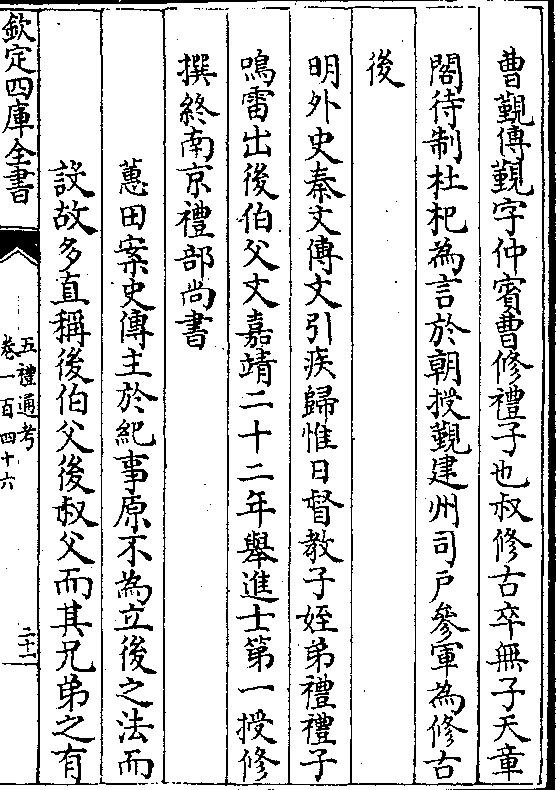 曹覲傳覲字仲賓曹修禮子也叔修古卒無子天章
閣待制杜杞為言於朝授覲建州司戶參軍為修古
後
明外史秦文傳文引疾歸惟日督教子姪弟禮禮子
鳴雷出後伯父文嘉靖二十二年舉進士第一授修
撰終南京禮部尚書
蕙田案史傳主於紀事原不為立後之法而
設故多直稱後伯父後叔父而其兄弟之有
欽定四庫全書
五禮通考
卷一百四十六
二十一